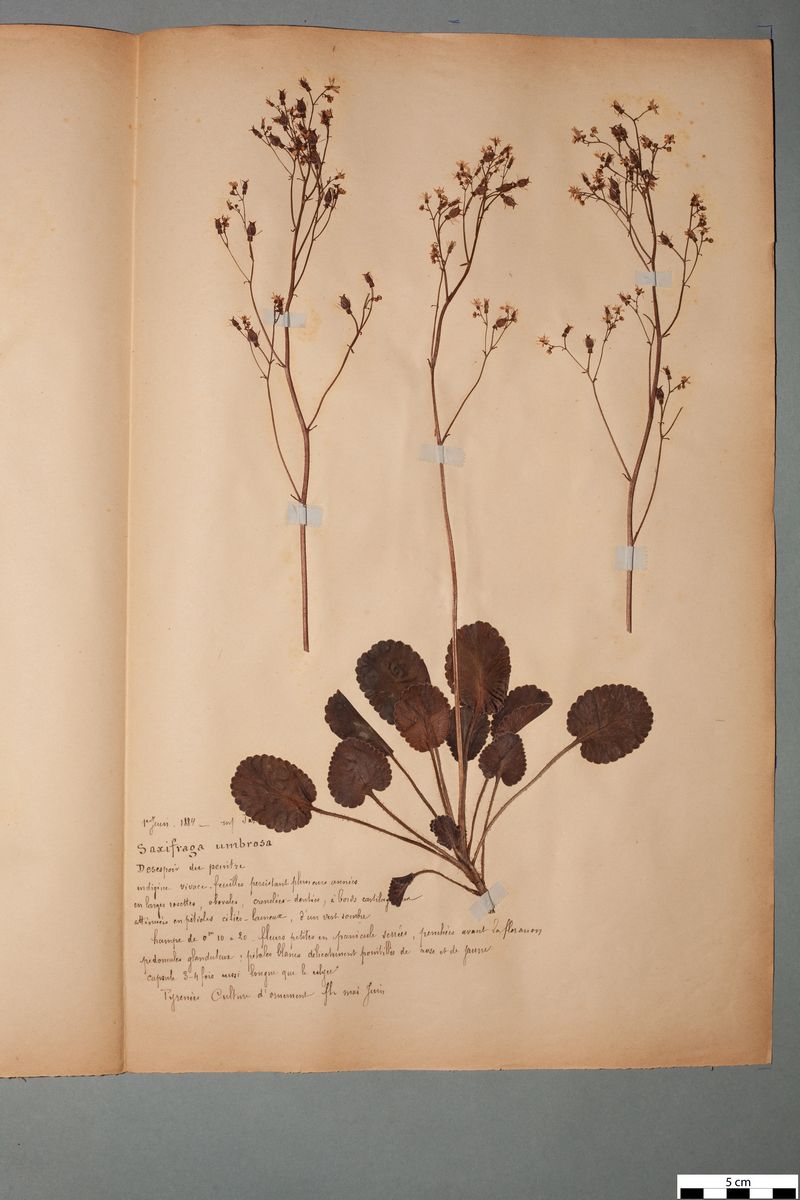 1er Juin. 1884 —
Saxifraga umbrosa
Desespoir du peintre
indigène vivace. feuilles persistant plusieurs années
en larges rosettes, obovales, crenelées-dentées, à bords
attenuées en pétioles ciliés-laineux, d'un vert sombre
hampe de 0m 10 à 20. fleurs petites en panicule serrées, penchées avant la floraison
pedoncules glanduleux; pétales blancs délicatement pointillés de rose et de jaune
capsule 3-4 fois aussi longue que le calyce
Pyrenées Culture d'ornement fl. mai Juin
5 cm